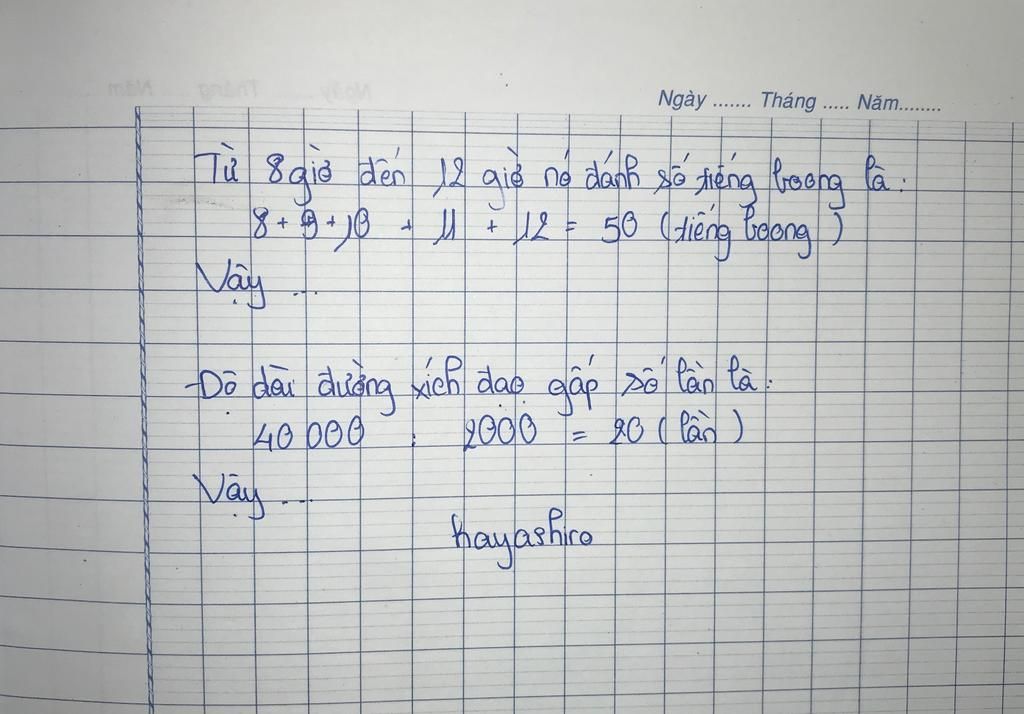 Ngày ....... Tháng ..... Năm........
Từ 8 giờ đến 12 giờ nó đánh số tiếng boong là:
8 + 9 + 10 + 11 + 12 = 50 (tiếng boong)
Vậy ...
Độ dài đường xích đạo gấp số lần là:
40 000 : 2000 = 20 (lần)
Vậy ...
hayashiro